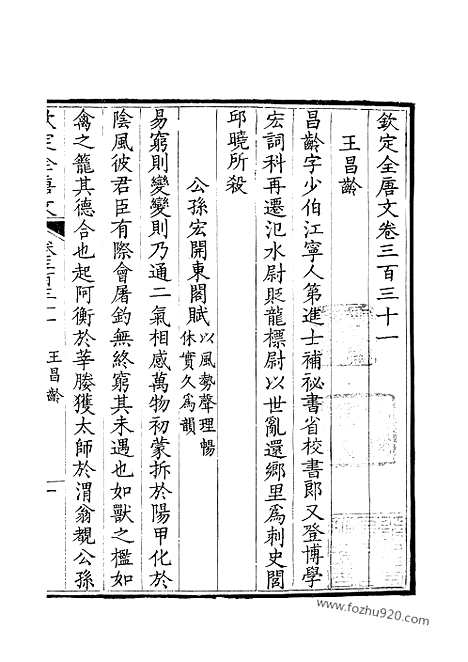 欽定全唐文卷三百三十一
王昌齡
昌齡字少伯江寧人第進士補祕書省校書郎又登博學
宏詞科再遷氾水尉貶龍標尉以世亂還鄉里爲刺史閭
邱曉所殺
公孫宏開東閣賦以風勢聲理暢
休實久爲韻
易窮則變變則乃通二氣相感萬物初蒙拆於陽甲化於
陰風彼君臣有際會屠釣無終窮其未遇也如獸之檻如
禽之籠其德合也起阿衡於莘媵獲太師於渭翁覩公孫
欽定全唐文
卷三百三十一
王昌齡
一
www.fozhu920.com